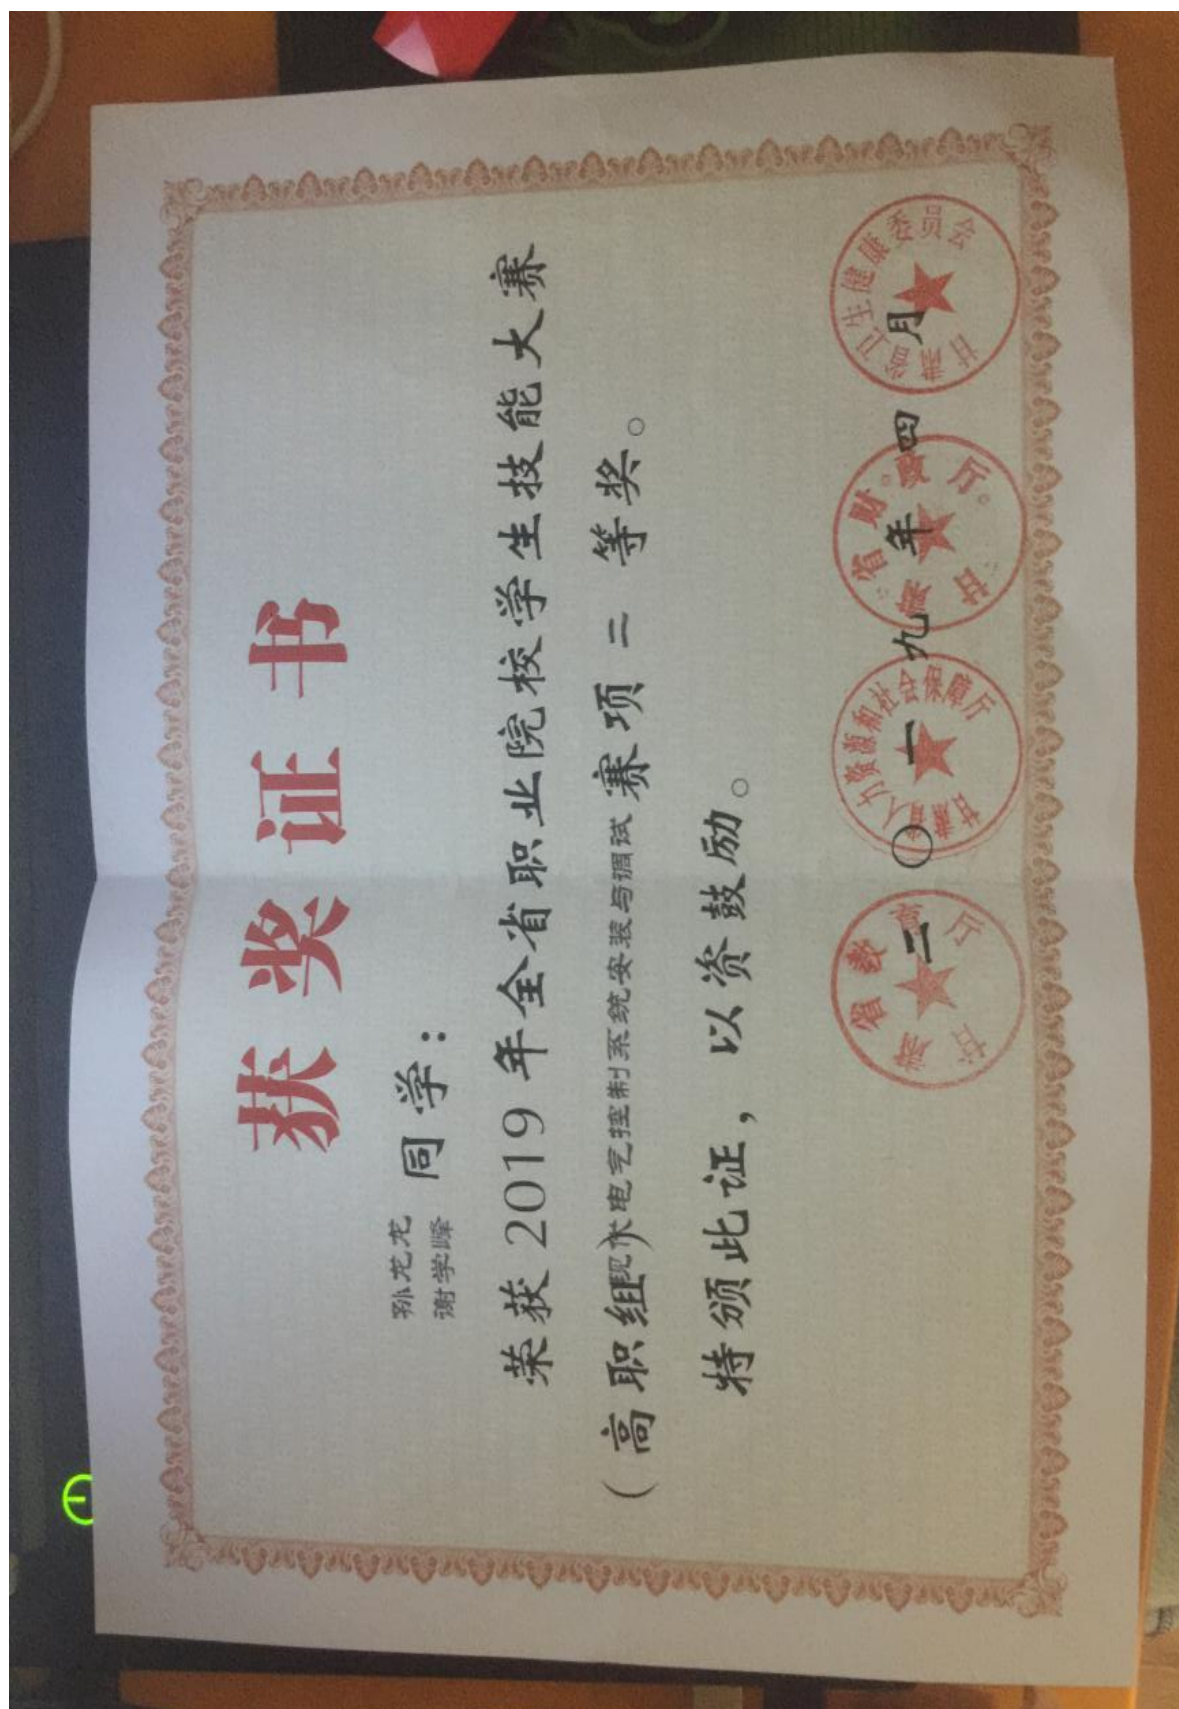 获奖证书
孙龙龙
谢学峰
同学：
荣获2019年全省职业院校学生技能大赛
（高职组）现代电气控制系统安装与调试 赛项 二 等奖。
特颁此证，以资鼓励。
甘肃省教育厅
甘肃省人力资源和社会保障厅
甘肃省财政厅
甘肃省卫生健康委员会
二〇一九年四月